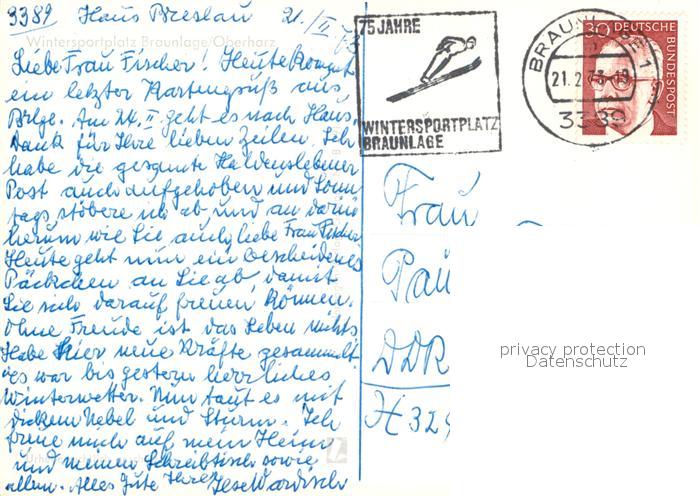 3389 Haus Breslau 21./II 73
Wintersportplatz Braunlage/Oberharz
Liebe Frau Fischer! Heute kommt
ein letzter Kartengruß aus
Brlge. Am 24. II. geht es nach Haus.
Dank für Ihre lieben Zeilen. Ich
habe die gesamte Haldenslebener
Post auch aufgehoben und Sonn
tags stöbere ich ab und an darin
herum wie Sie auch, liebe Frau Fischer
Heute geht nun ein bescheidenes
Päckchen an Sie ab, damit
Sie sich darauf freuen können.
Ohne Freude ist das Leben nichts
Habe hier neue Kräfte gesammelt.
Es war bis gestern herrliches
Winterwetter. Nun taut es mit
dickem Nebel und Sturm. Ich
freue mich auf mein Heim
und meinen Schreibtisch sowie
allem. Alles Gute Ihre
75 JAHRE
WINTERSPORTPLATZ
BRAUNLAGE
BRAUNLAGE 1
21.2.73-19
3389
30 DEUTSCHE
BUNDESPOST
Frau
Pau
DDR
H 325
privacy protection
Datenschutz